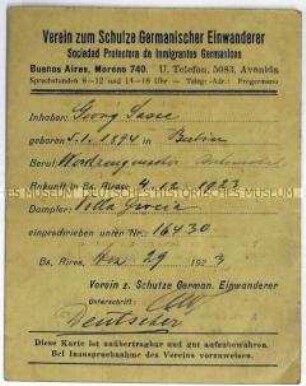 Verein zum Schutze Germanischer Einwanderer
Sociedad Protectora de Inmigrantes Germanicos
Buenos Aires, Moreno 740. U. Telefon, 5083, Avenida
Sprechstunden 8—12 und 14—18 Uhr — Telegr.-Adr.: Progermano
Inhaber: Georg Sasse
geboren 5.1.1894 in Berlin
Beruf:
Ankunft in Bs. Aires: 4. 12. 1923
Dampfer: Villa Garcia
eingeschrieben unter Nr.: 16430
Bs. Aires, Nov 29 1923
Verein z. Schutze German. Einwanderer
Unterschrift:
Deutscher
Diese Karte ist unübertragbar und gut aufzubewahren.
Bei Inanspruchnahme des Vereins vorzuweisen.